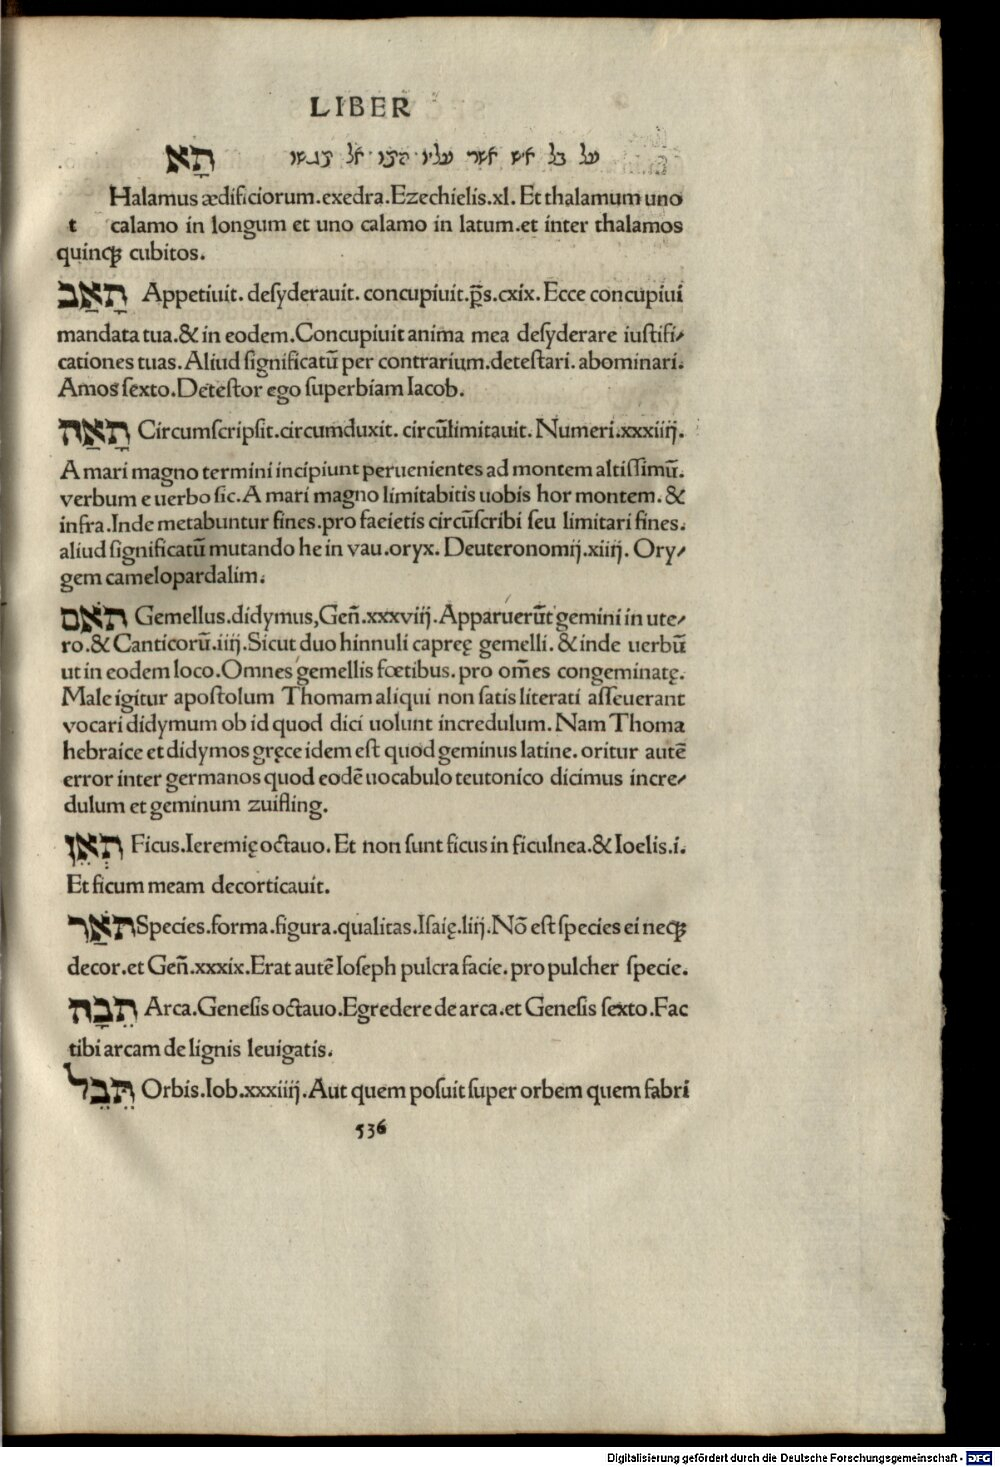 LIBER
תָא
על כל איש אשר עליו התו אל תגשו
Halamus ædificiorum.exedra.Ezechielis.xl. Et thalamum uno
t calamo in longum et uno calamo in latum.et inter thalamos
quinqꝫ cubitos.
תָאַב Appetiuit. desyderauit. concupiuit.ꝑ̄s.cxix. Ecce concupiui
mandata tua.& in eodem.Concupiuit anima mea desyderare iustifi/
cationes tuas. Aliud significatū per contrarium.detestari. abominari.
Amos sexto.Detestor ego superbiam Iacob.
תָאַה Circumscripsit.circumduxit. circūlimitauit. Numeri.xxxiiij.
A mari magno termini incipiunt peruenientes ad montem altissimū.
verbum e uerbo sic.A mari magno limitabitis uobis hor montem. &
infra.Inde metabuntur fines.pro facietis circūscribi seu limitari fines.
aliud significatū mutando he in vau.oryx. Deuteronomij.xiiij. Ory/
gem camelopardalim.
תֹאַם Gemellus.didymus,Geñ.xxxviij.Apparuerūt gemini in ute/
ro.& Canticorū.iiij.Sicut duo hinnuli caprę gemelli. & inde uerbū
ut in eodem loco.Omnes gemellis fœtibus. pro om̄es congeminatę.
Male igitur apostolum Thomam aliqui non satis literati asseuerant
vocari didymum ob id quod dici uolunt incredulum. Nam Thoma
hebraice et didymos gręce idem est quod geminus latine. oritur autē
error inter germanos quod eodē uocabulo teutonico dicimus incre/
dulum et geminum zuifling.
תְאֵן Ficus.Ieremię octauo. Et non sunt ficus in ficulnea.& Ioelis.i.
Et ficum meam decorticauit.
תֹאַר Species.forma.figura.qualitas.Isaię.liij. Nō est species ei neqꝫ
decor.et Geñ.xxxix.Erat autē Ioseph pulcra facie. pro pulcher specie.
תֵבָה Arca.Genesis octauo.Egredere de arca.et Genesis sexto.Fac
tibi arcam de lignis leuigatis.
תֵּבֵל Orbis.Iob.xxxiiij.Aut quem posuit super orbem quem fabri
536
Digitalisierung gefördert durch die Deutsche Forschungsgemeinschaft - DFG